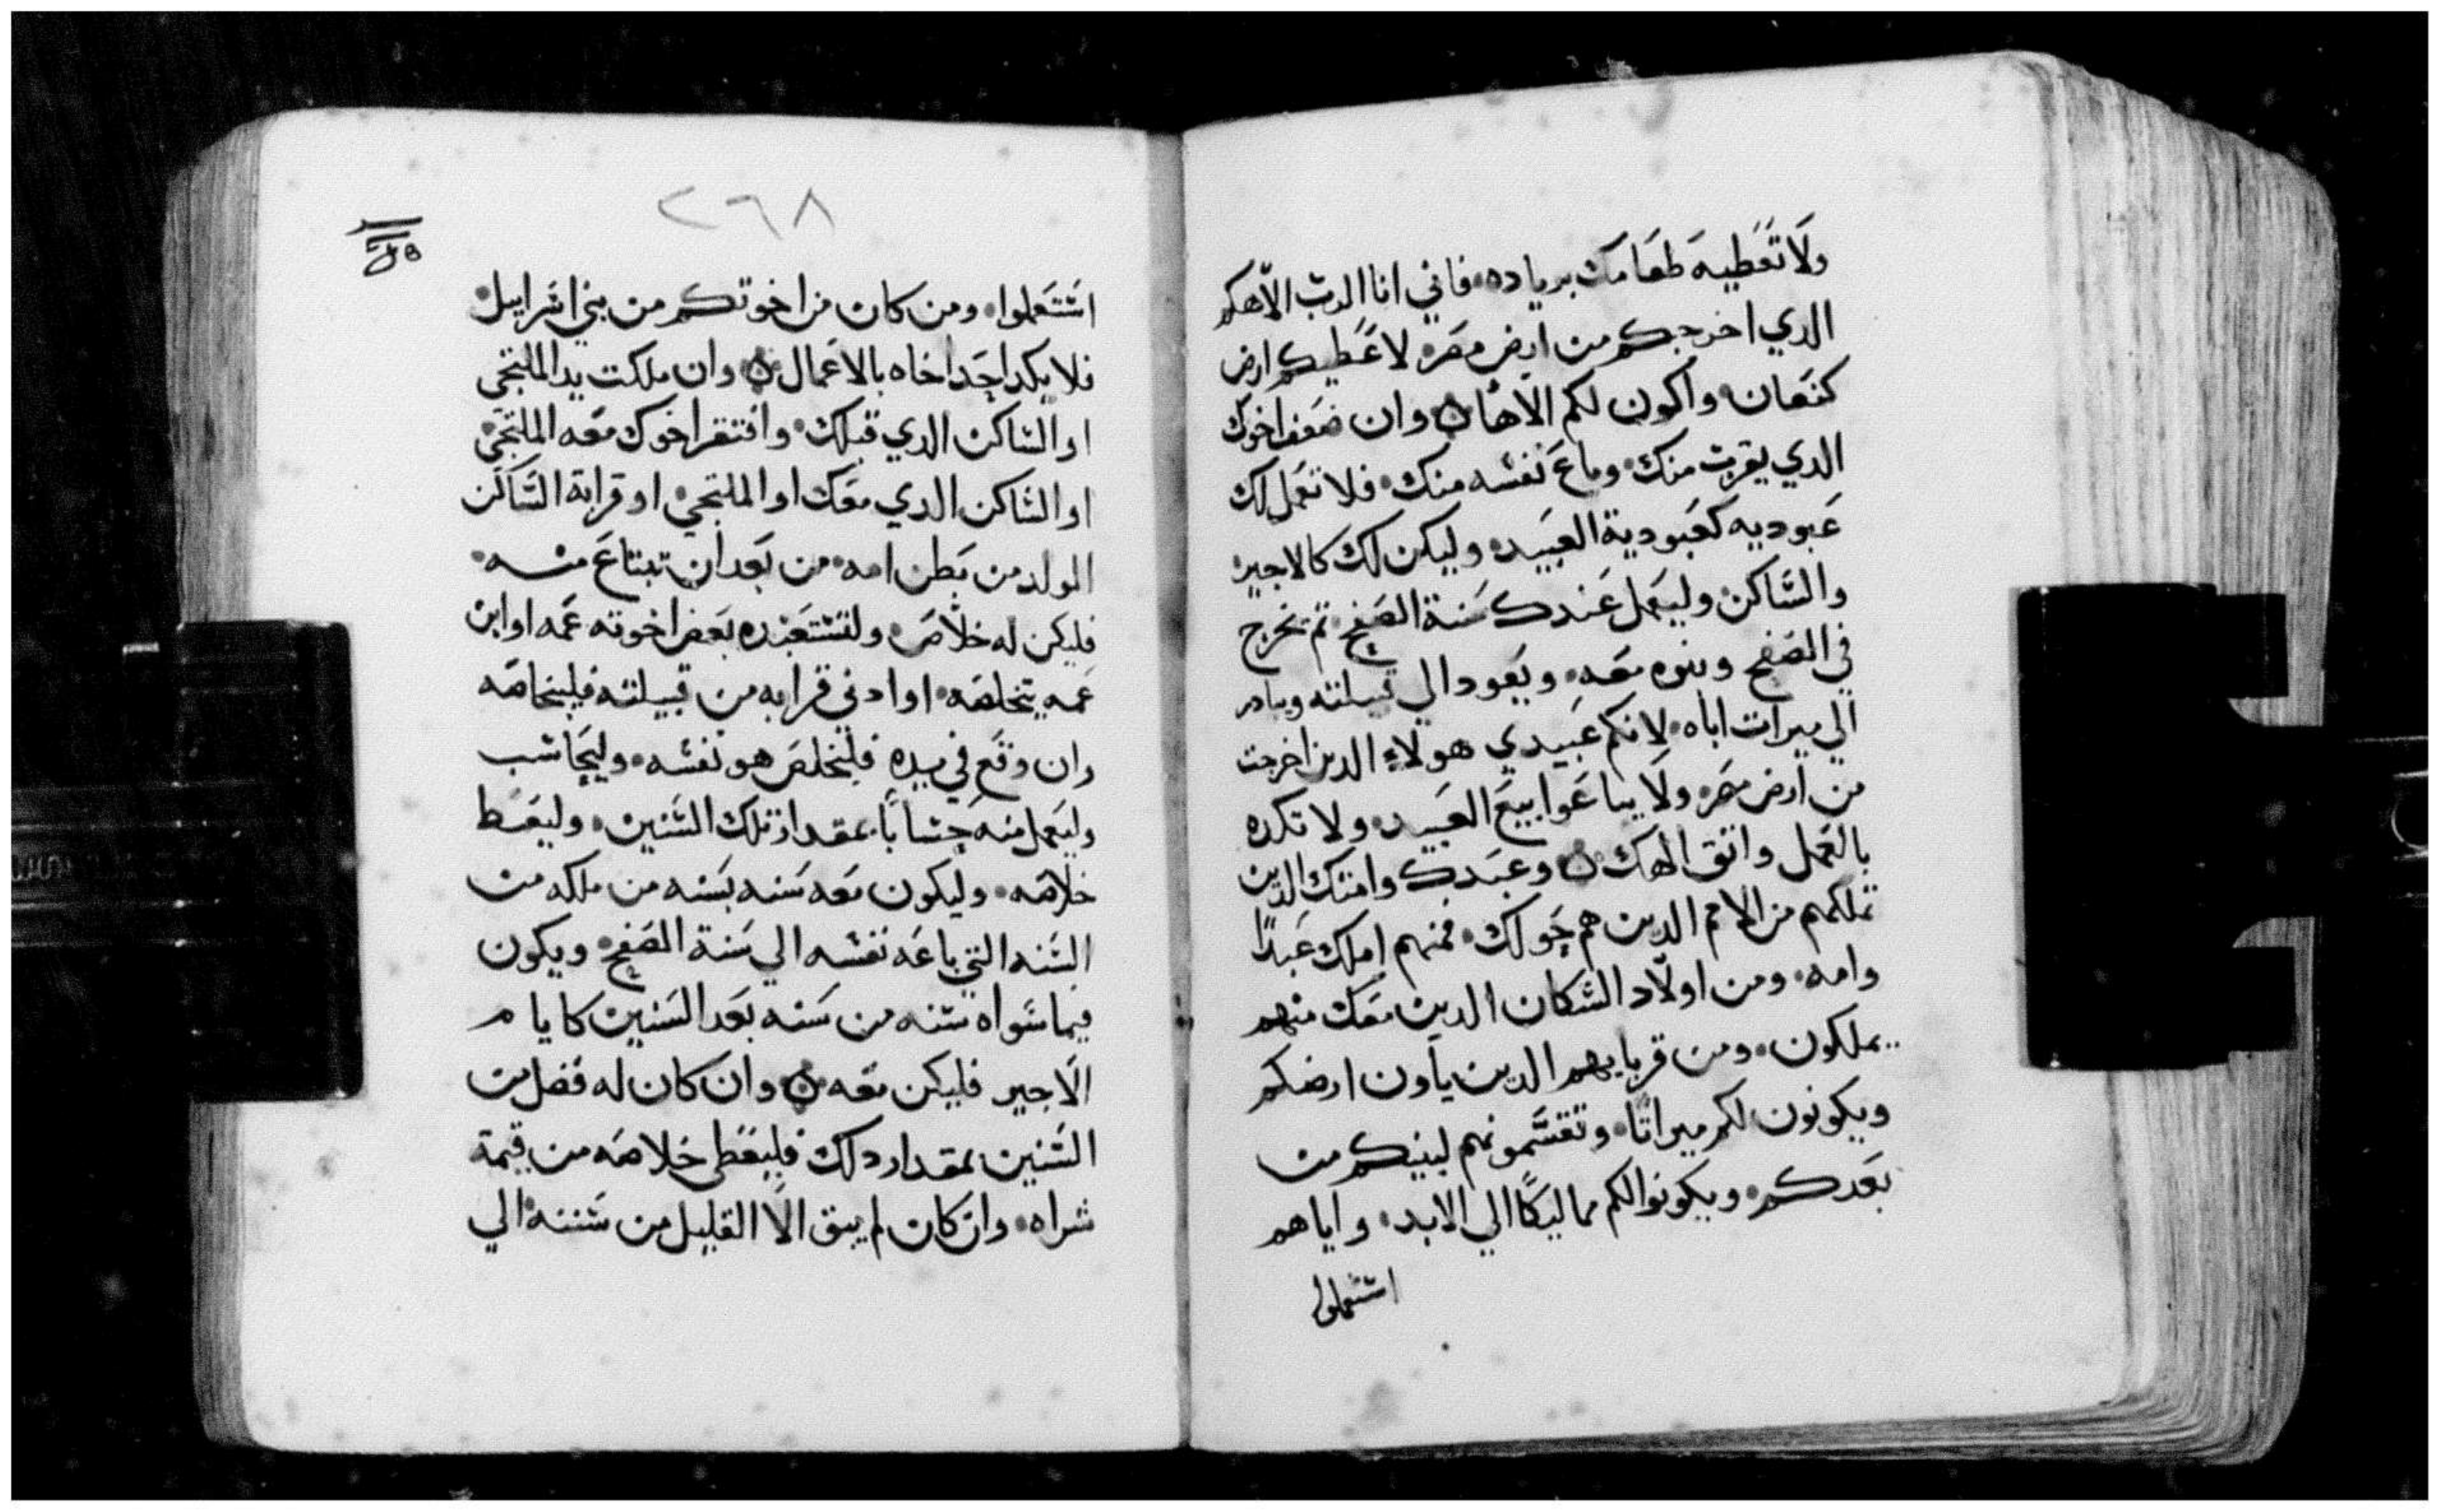 ولا تعطيه طعامك برياده، فاني انا الرب الاهكم
الدي اخرجكم من ارض مصر، لاعطيكم ارض
كنعان واكون لكم الاهًا ۞ وان ضعف اخوك
الدي يقرب منك، وباع نفسه منك، فلا تعمل لك
عبوديه كعبودية العبيد، وليكن لك كالاجير
والساكن، وليعمل عندك سنة الصفح، تم يخرج
في الصفح وبنوه معه، ويعود الي قبيلته ويبادر
الي ميرات اباه، لانكم عبيدي هولاء الدين اخرجت
من ارض مصر، ولا يباعوا بيع العبيد، ولا تكده
بالعمل واتق الهك ۞ وعبدك وامتك الدين
تملكهم من الامم الدين هم حولك، فمنهم املك عبدًا
وامه، ومن اولاد السكان الدين معك منهم
يملكون، ومن قربايهم الدين ياون ارضكم
ويكونون لكم ميراتًا، وتقسمونهم لبنيكم من
بعدكم، ويكونوا لكم مماليكًا الي الابد، واياهم
استعملوا
٢٦٨
استعملوا، ومن كان من اخوتكم من بني اسراييل
فلا يكد احد اخاه بالاعمال ۞ وان ملكت يد الملتجي
او الساكن الدي قبلك، وافتقر اخوك معه الملتجي
او الساكن الدي معك او الملتجي، او قرابة الساكن
المولد من بطن امه، من بعد ان تبتاع منه،
فليكن له خلاص، ولتستعبده بعض اخوته عمه او ابن
عمه يتخلصه، او ادني قرابه من قبيلته فليتخلصه
وان وقع في يده فليتخلص هو نفسه، وليحاسب
وليعمل منه حسابًا بمقدار تلك السنين، وليعط
خلاصه، وليكون معه سنه بسنه من ملكه من
السنه التي باعه نفسه الي سنة الصفح، ويكون
فيما سواه سنه من سنه بعد السنين كايام
الاجير فليكن معه ۞ وان كان له فضل من
السنين بمقدار دلك فليعطي خلاصه من قيمة
شراه، وان كان لم يبق الا القليل من سننه الي